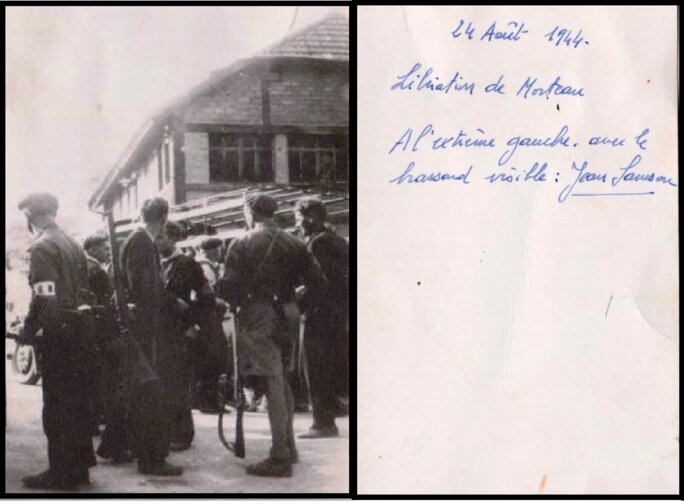 24 Août 1944.
Libération de Morteau
A l'extrême gauche. avec le
brassard visible : Jean Samson